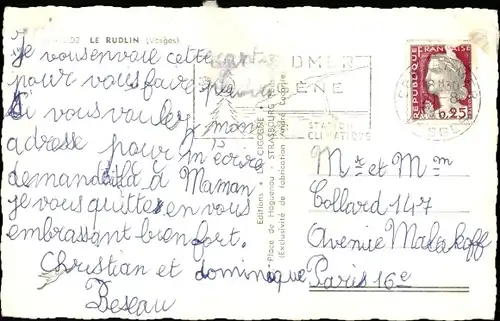 LE RUDLIN (Vosges)
Je vous envoie cette carte
pour vous faire
Si vous voulez mon
adresse pour m'écrire
demandé la à Maman
je vous quitte en vous
embrassant bien fort.
Christian et dominique
Beseau
Editions "LA CIGOGNE"
Place de Haguenau - STRASBOURG
(Exclusivité de fabrication André
STATION
CLIMATIQUE
REPUBLIQUE FRANÇAISE
0,25
Mr et Mm
Collard 147
Avenue Malakoff
Paris 16e